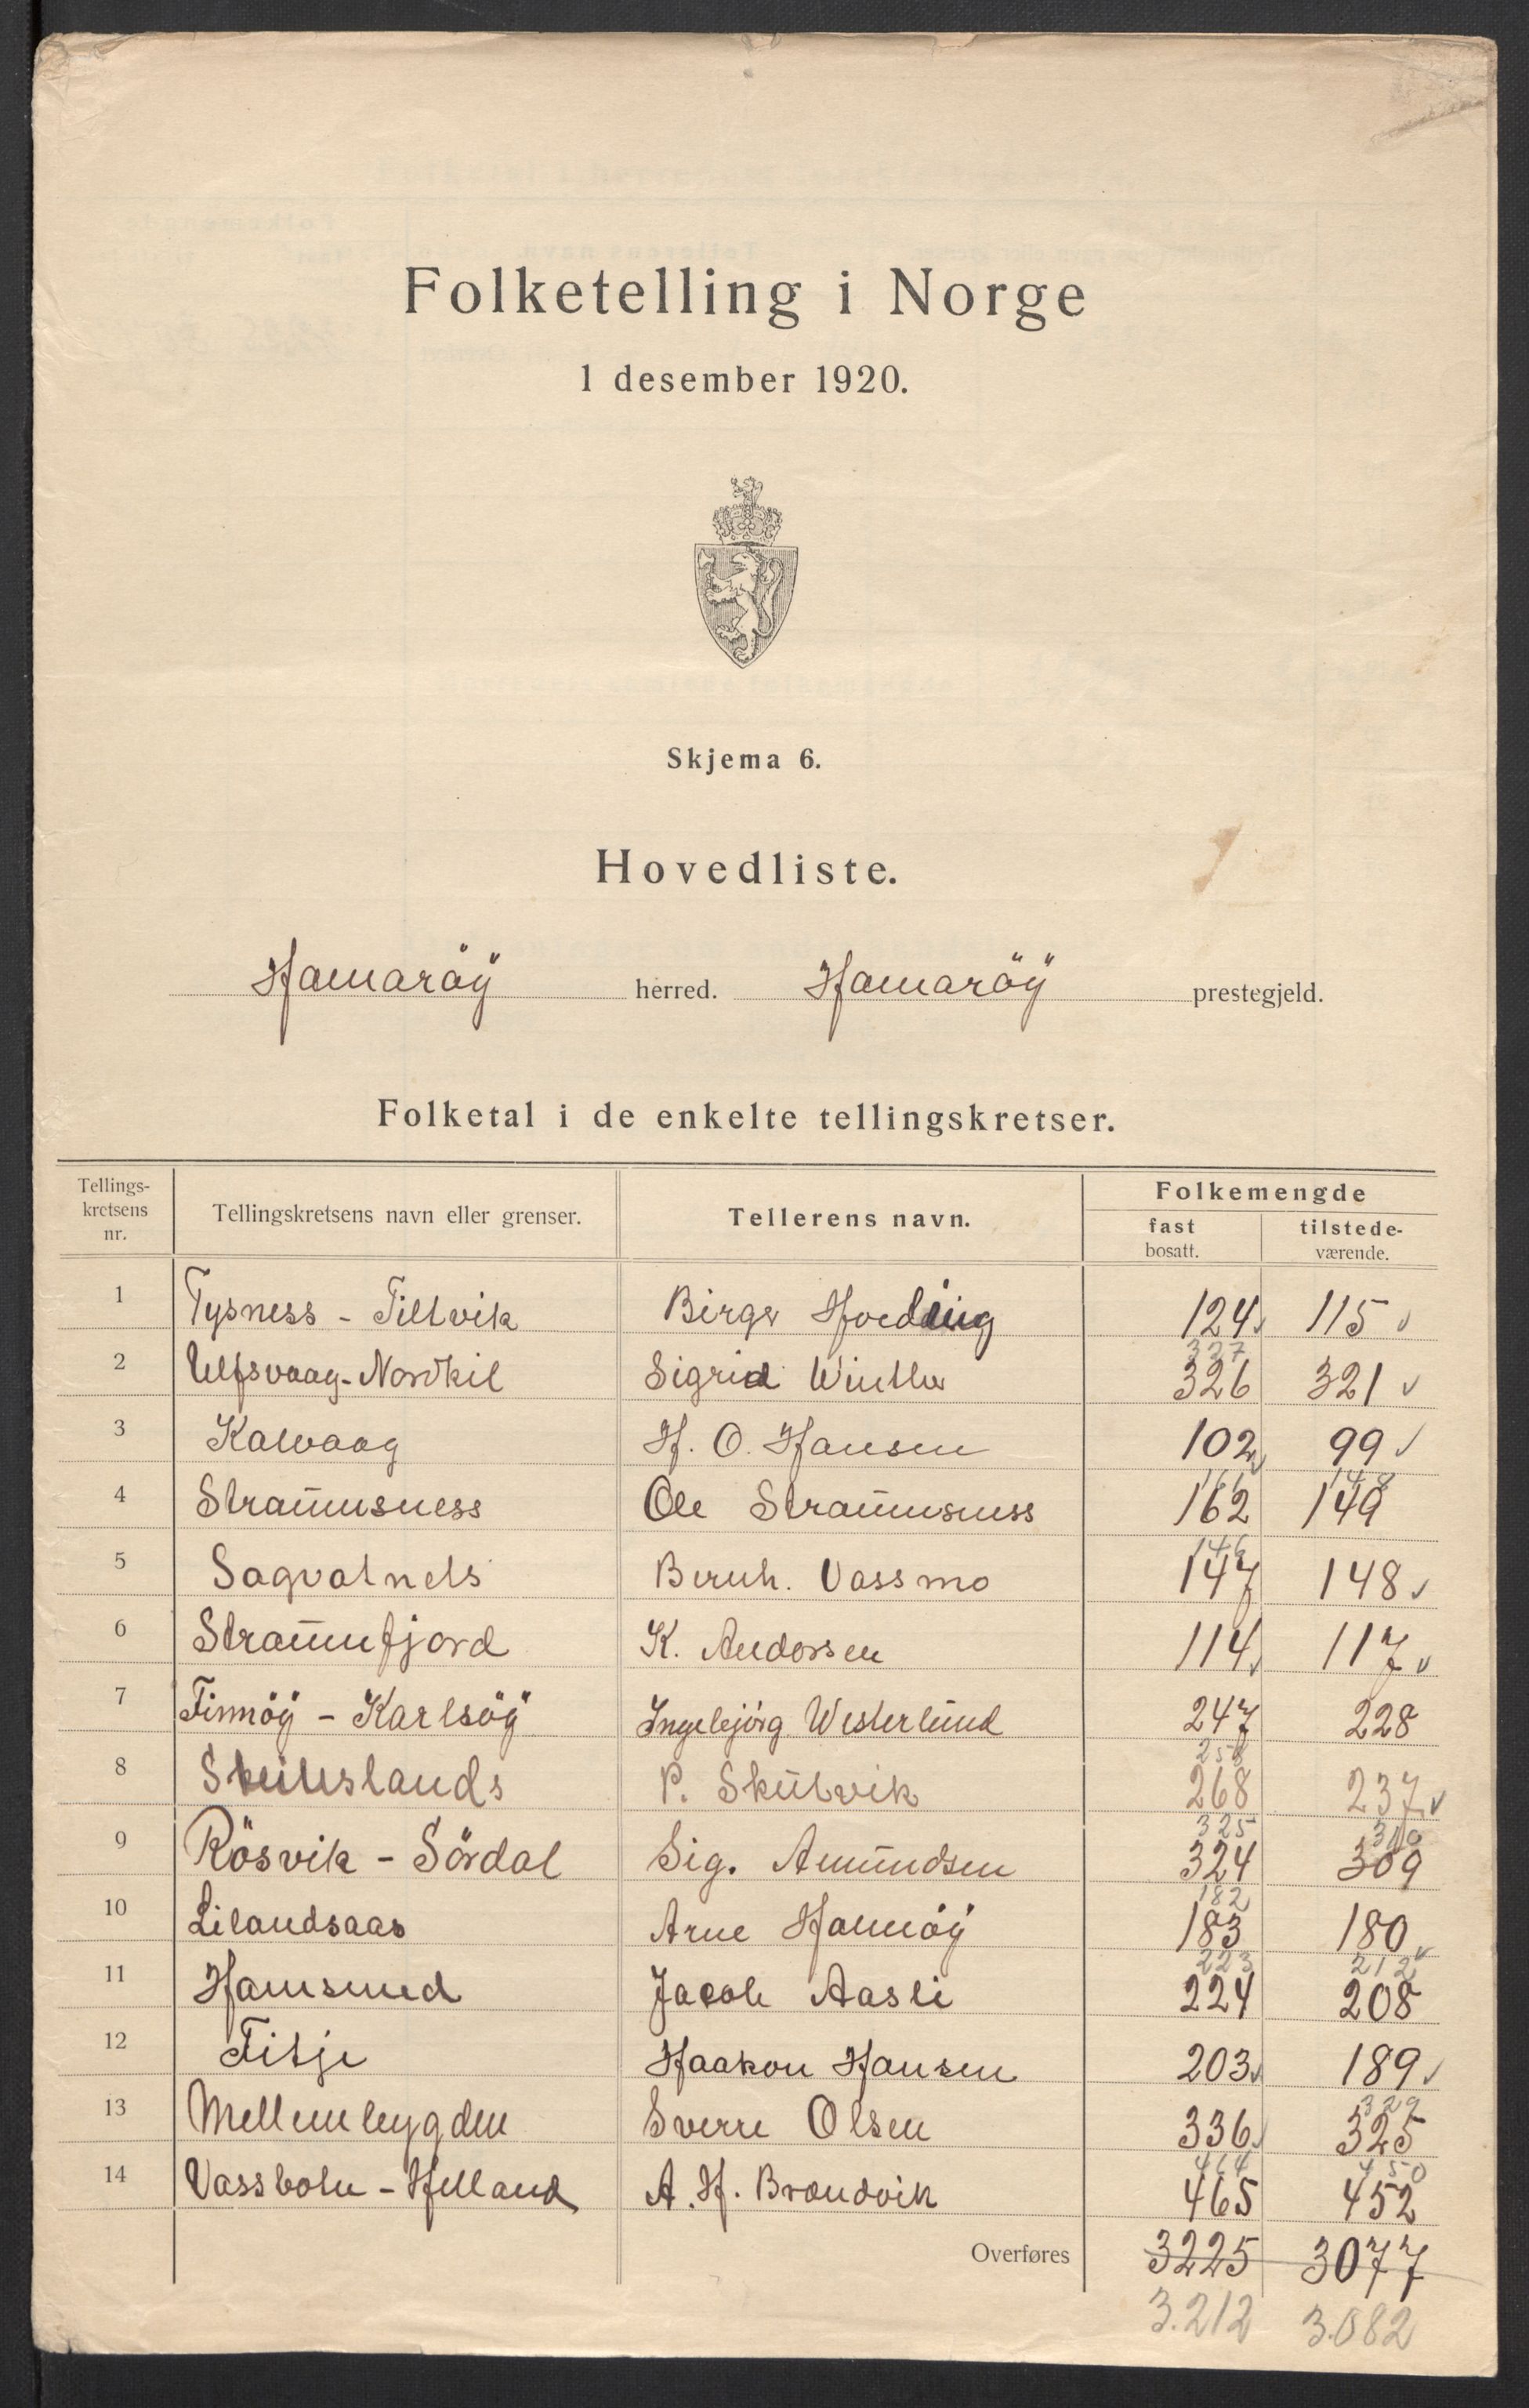 Folketelling i Norge
1 desember 1920.
Skjema 6.
Hovedliste.
Hamaröy herred. Hamaröy prestegjeld.
Folketal i de enkelte tellingskretser.
Tellingskretsens nr. Tellingskretsens navn eller grenser. Tellerens navn. Folkemengde
fast bosatt. tilstedeværende.
1 Tysness - Tiltvik Birger Hjording 124 115
327
2 Ulfsvaag - Nordkil Sigrid Winther 326 321
3 Kalvaag H. O. Hansen 102 99
161 148
4 Straumsness Ole Straumsness 162 149
146
5 Sagvatnets Bernh. Vassmo 147 148
6 Straumfjord K. Andersen 114 117
7 Finnöy - Karlsöy Ingebjörg Westerlund 247 228
258
8 Skutslands P. Skutvik 268 237
325 310
9 Rösvik - Sördal Sig. Amundsen 324 309
182
10 Lilandsaas Arne Hamöy 183 180
223 212
11 Hamsund Jacob Aasli 224 208
12 Fitje Haakon Hansen 203 189
329
13 Mellembygden Sverre Olsen 336 325
464 450
14 Vassbotn - Helland A. H. Brandvik 465 452
Overføres 3225 3077
3.212 3.082